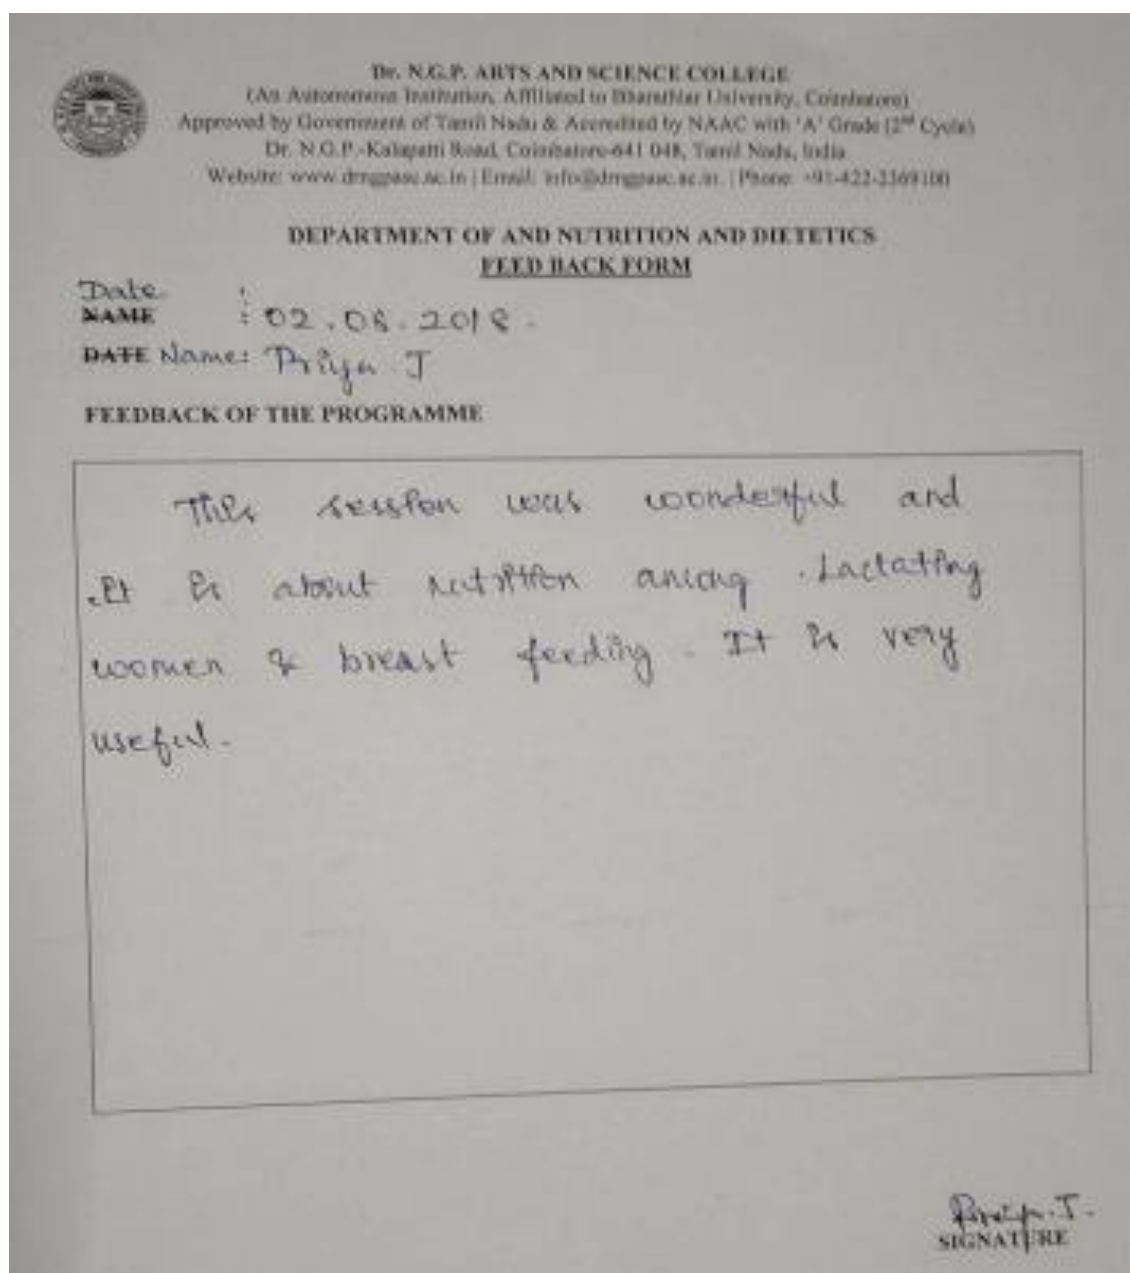 Dr. N.G.P. ARTS AND SCIENCE COLLEGE
(An Autonomous Institution, Affiliated to Bharathiar University, Coimbatore)
Approved by Government of Tamil Nadu & Accredited by NAAC with 'A' Grade (2nd Cycle)
Dr. N.G.P.-Kalapatti Road, Coimbatore-641 048, Tamil Nadu, India
Website: www.drngpasc.ac.in | Email: info@drngpasc.ac.in | Phone: +91-422-2369100
DEPARTMENT OF AND NUTRITION AND DIETETICS
FEED BACK FORM
Date :
NAME : 02.08.2018.
DATE Name: Priya J
FEEDBACK OF THE PROGRAMME
This session was wonderful and
It is about nutrition among Lactating
women & breast feeding. It is very
useful.
Priya.J.
SIGNATURE